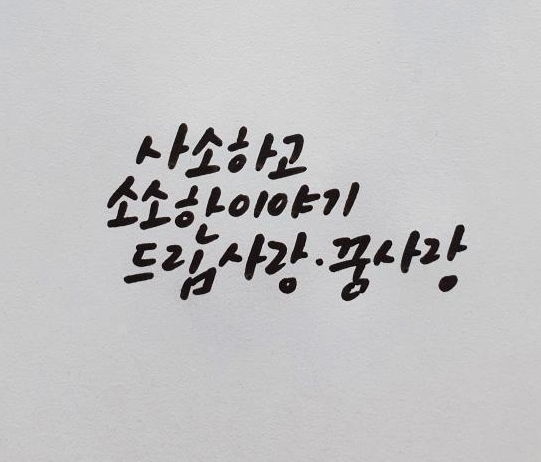 사소하고
소소한이야기
드림사랑·꿍사랑